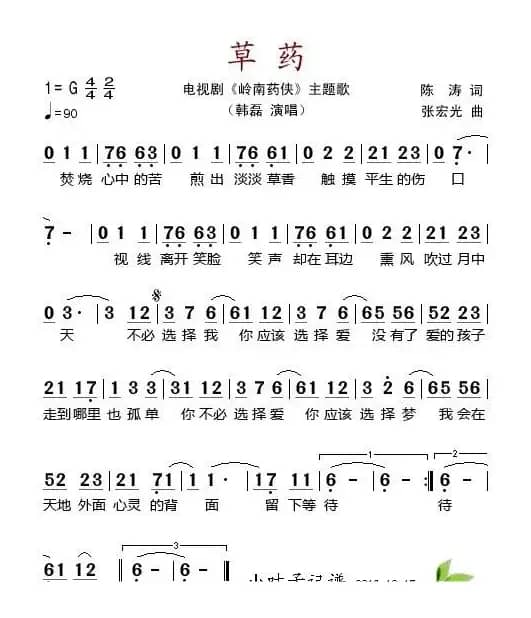 草 药
1= G 4/4 2/4 电视剧《岭南药侠》主题歌 陈 涛 词
♩=90 （韩磊 演唱） 张宏光 曲
0 1 1 | 76 63 | 0 1 1 | 76 61 | 0 2 2 | 21 23 | 0 7· |
焚烧 心中 的苦 煎出 淡淡 草香 触摸 平生 的伤 口
7 - | 0 1 1 | 76 63 | 0 1 1 | 76 61 | 0 2 2 | 21 23 |
视线 离开 笑脸 笑声 却在 耳边 熏风 吹过 月中
0 3· | 3 12 | 3 7 6 | 61 12 | 3 7 6 | 65 56 | 52 23 |
天 不必 选择我 你应该 选择爱 没有了 爱的孩子
21 17 | 1 3 3 | 3 12 | 3 7 6 | 61 12 | 3 7 6 | 65 56 |
走到哪里 也孤单 你不必 选择爱 你应该 选择梦 我会在
52 23 | 21 71 | 1 1· | 17 11 | 6 - | 6 - :| 6 - |
天地 外面 心灵 的背 面 留 下等 待 待
61 12 ‖ 6 - | 6 - ‖